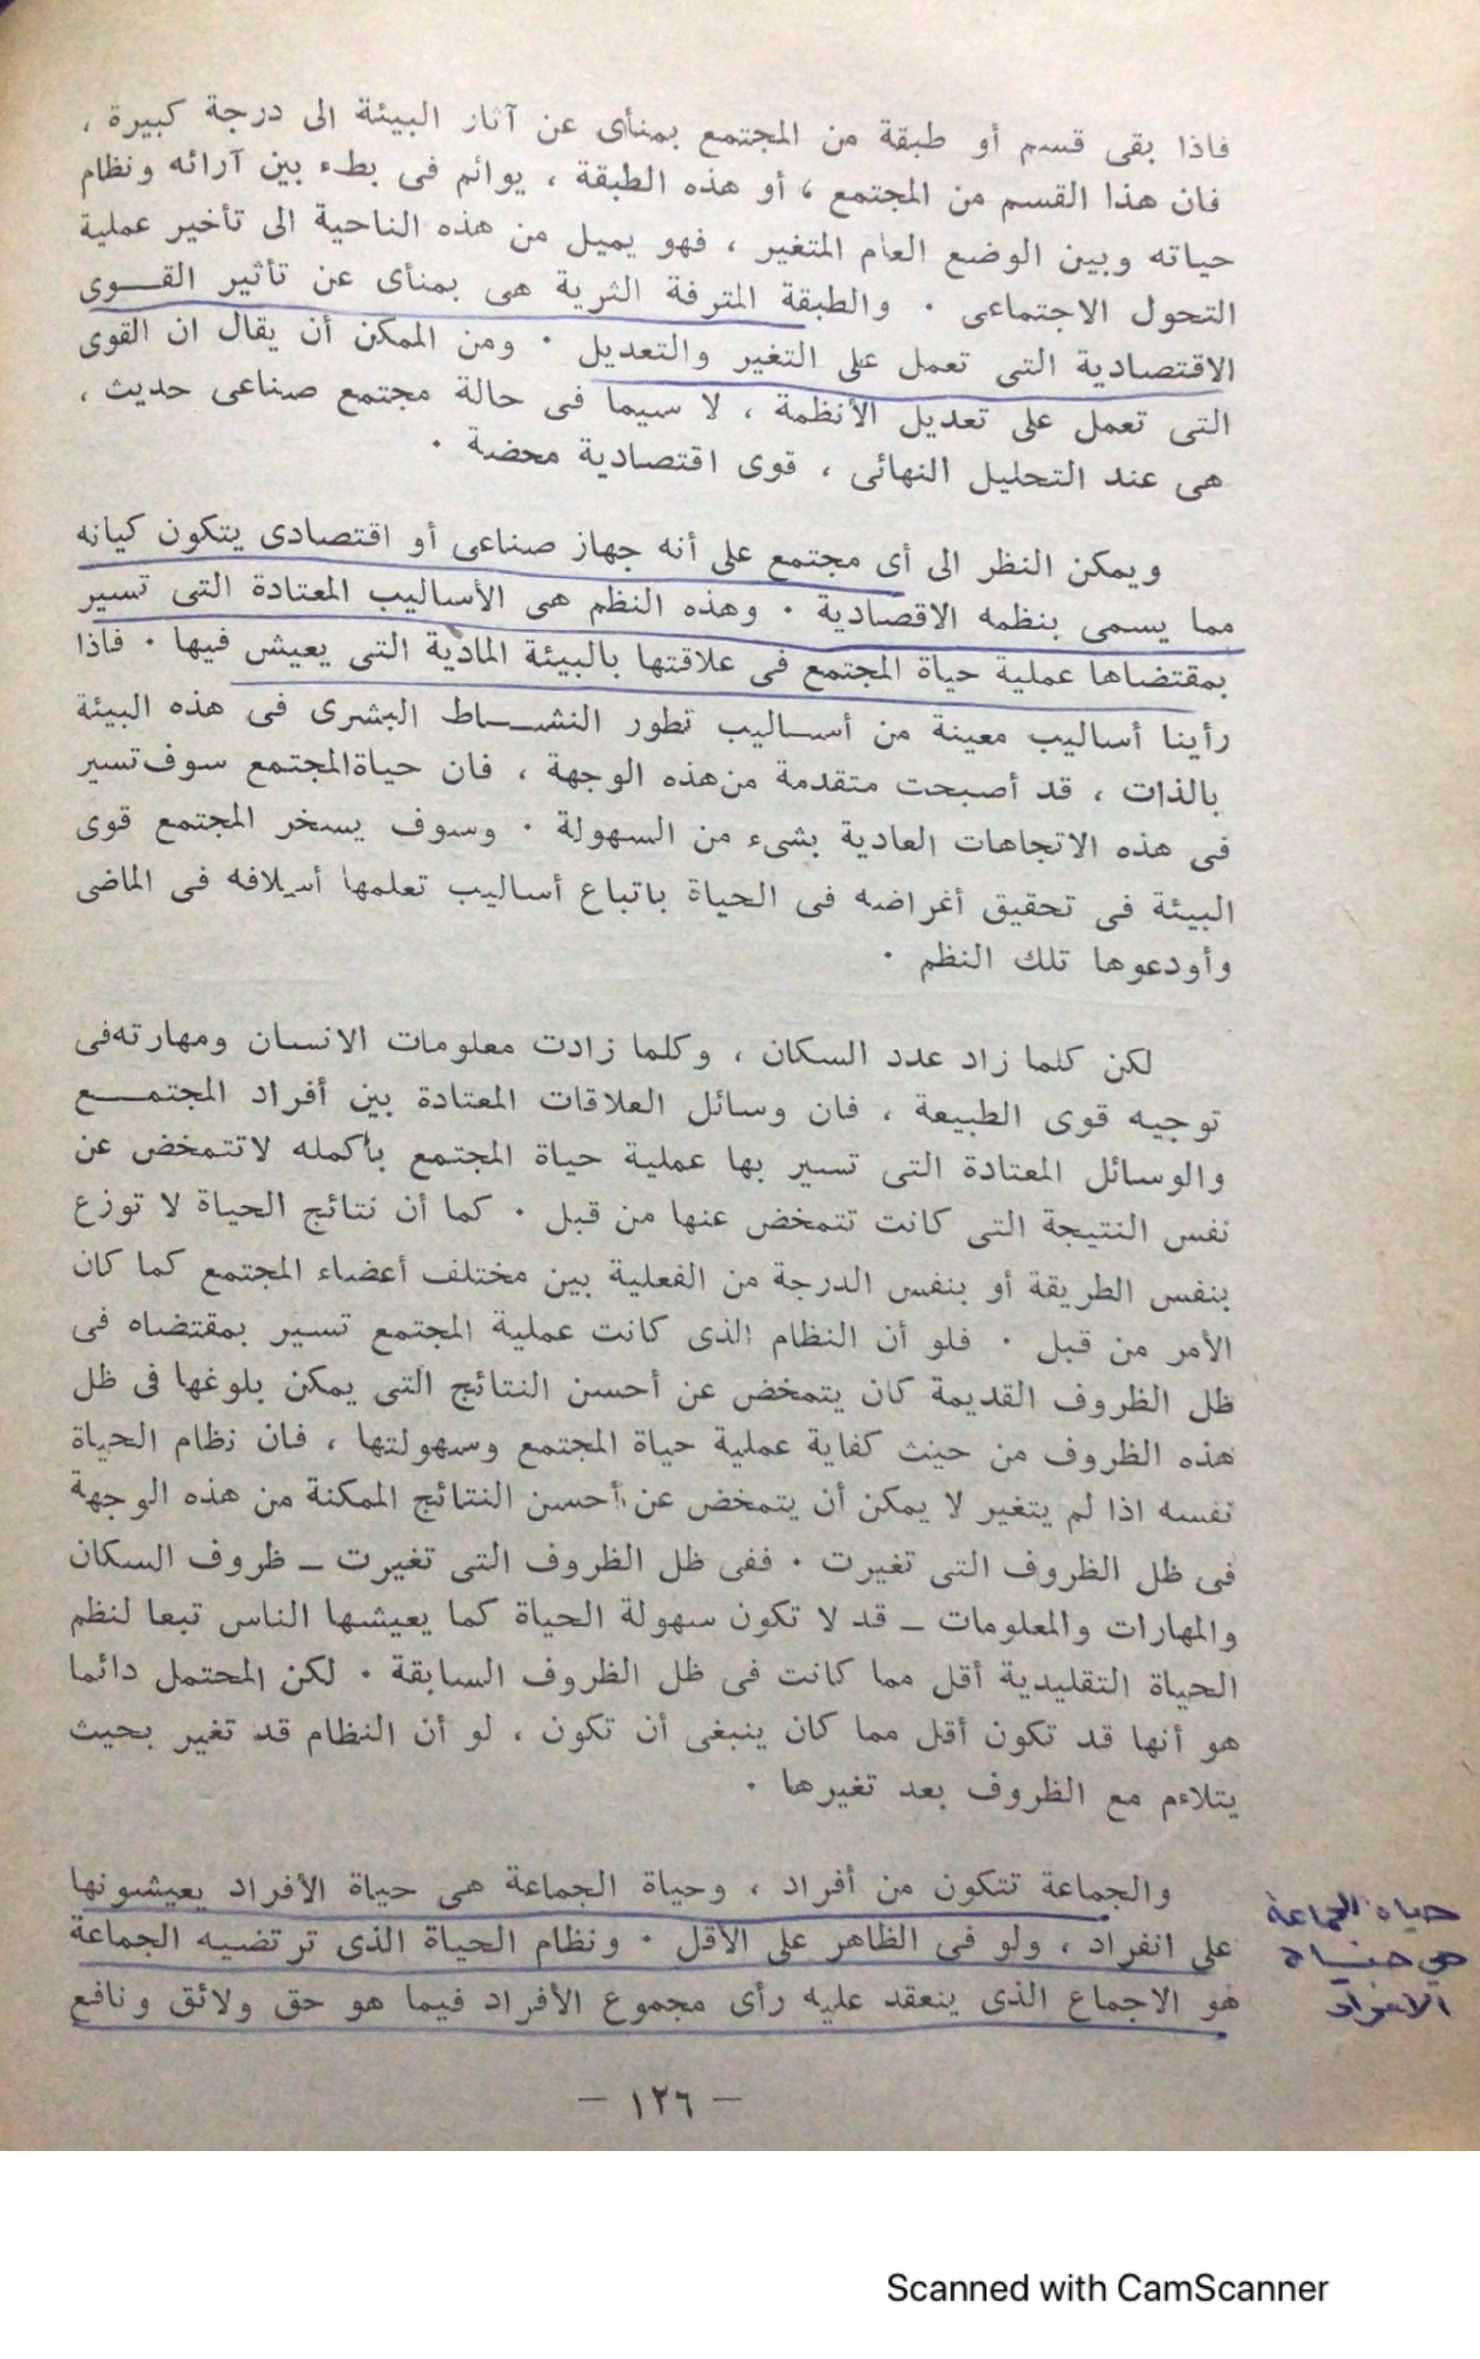 فاذا بقى قسم أو طبقة من المجتمع بمنأى عن آثار البيئة الى درجة كبيرة ،
فان هذا القسم من المجتمع ، أو هذه الطبقة ، يوائم فى بطء بين آرائه ونظام
حياته وبين الوضع العام المتغير ، فهو يميل من هذه الناحية الى تأخير عملية
التحول الاجتماعى . والطبقة المترفة الثرية هى بمنأى عن تأثير القــوى
الاقتصادية التى تعمل على التغير والتعديل . ومن الممكن أن يقال ان القوى
التى تعمل على تعديل الأنظمة ، لا سيما فى حالة مجتمع صناعى حديث ،
هى عند التحليل النهائى ، قوى اقتصادية محضة .
ويمكن النظر الى أى مجتمع على أنه جهاز صناعى أو اقتصادى يتكون كيانه
مما يسمى بنظمه الاقصادية . وهذه النظم هى الأساليب المعتادة التى تسير
بمقتضاها عملية حياة المجتمع فى علاقتها بالبيئة المادية التى يعيش فيها . فاذا
رأينا أساليب معينة من أســاليب تطور النشــاط البشرى فى هذه البيئة
بالذات ، قد أصبحت متقدمة من هذه الوجهة ، فان حياة المجتمع سوف تسير
فى هذه الاتجاهات العادية بشىء من السهولة . وسوف يسخر المجتمع قوى
البيئة فى تحقيق أغراضه فى الحياة باتباع أساليب تعلمها أسلافه فى الماضى
وأودعوها تلك النظم .
لكن كلما زاد عدد السكان ، وكلما زادت معلومات الانسان ومهارته فى
توجيه قوى الطبيعة ، فان وسائل العلاقات المعتادة بين أفراد المجتمــع
والوسائل المعتادة التى تسير بها عملية حياة المجتمع بأكمله لا تتمخض عن
نفس النتيجة التى كانت تتمخض عنها من قبل . كما أن نتائج الحياة لا توزع
بنفس الطريقة أو بنفس الدرجة من الفعلية بين مختلف أعضاء المجتمع كما كان
الأمر من قبل . فلو أن النظام الذى كانت عملية المجتمع تسير بمقتضاه فى
ظل الظروف القديمة كان يتمخض عن أحسن النتائج التى يمكن بلوغها فى ظل
هذه الظروف من حيث كفاية عملية حياة المجتمع وسهولتها ، فان نظام الحياة
نفسه اذا لم يتغير لا يمكن أن يتمخض عن أحسن النتائج الممكنة من هذه الوجهة
فى ظل الظروف التى تغيرت . ففى ظل الظروف التى تغيرت ــ ظروف السكان
والمهارات والمعلومات ــ قد لا تكون سهولة الحياة كما يعيشها الناس تبعا لنظم
الحياة التقليدية أقل مما كانت فى ظل الظروف السابقة . لكن المحتمل دائما
هو أنها قد تكون أقل مما كان ينبغى أن تكون ، لو أن النظام قد تغير بحيث
يتلاءم مع الظروف بعد تغيرها .
والجماعة تتكون من أفراد ، وحياة الجماعة هى حياة الأفراد يعيشونها
على انفراد ، ولو فى الظاهر على الأقل . ونظام الحياة الذى ترتضيه الجماعة
هو الاجماع الذى ينعقد عليه رأى مجموع الأفراد فيما هو حق ولائق ونافع
حياة الجماعة
هي حياة
الافراد
— ١٢٦ —
Scanned with CamScanner